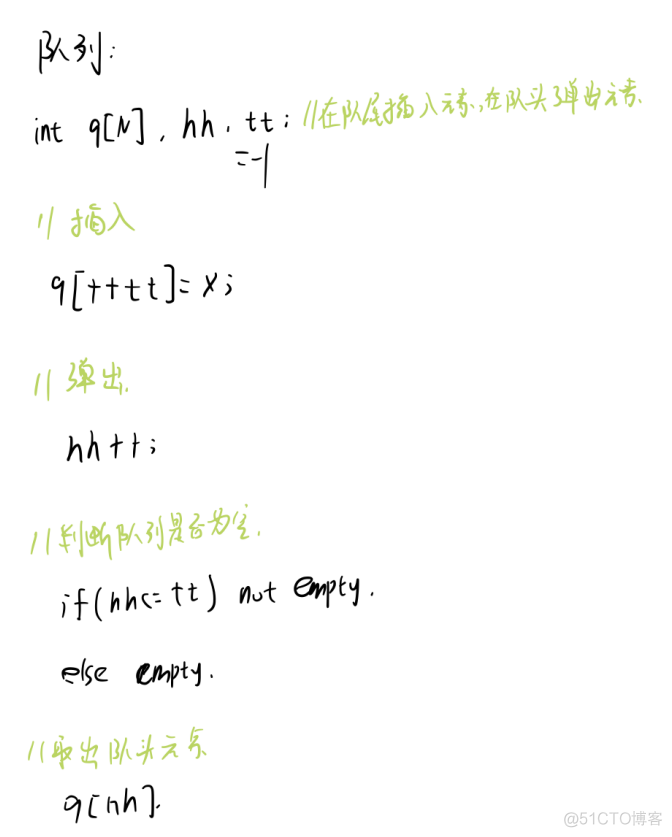 队列:
int q[N], hh, tt; //在队尾插入元素,在队头弹出元素.
=-1
//插入
q[++tt]=x;
//弹出.
hh++;
//判断队列是否为空.
if(hh<=tt) not empty.
else empty.
//取出队头元素
q[hh].
@51CTO博客